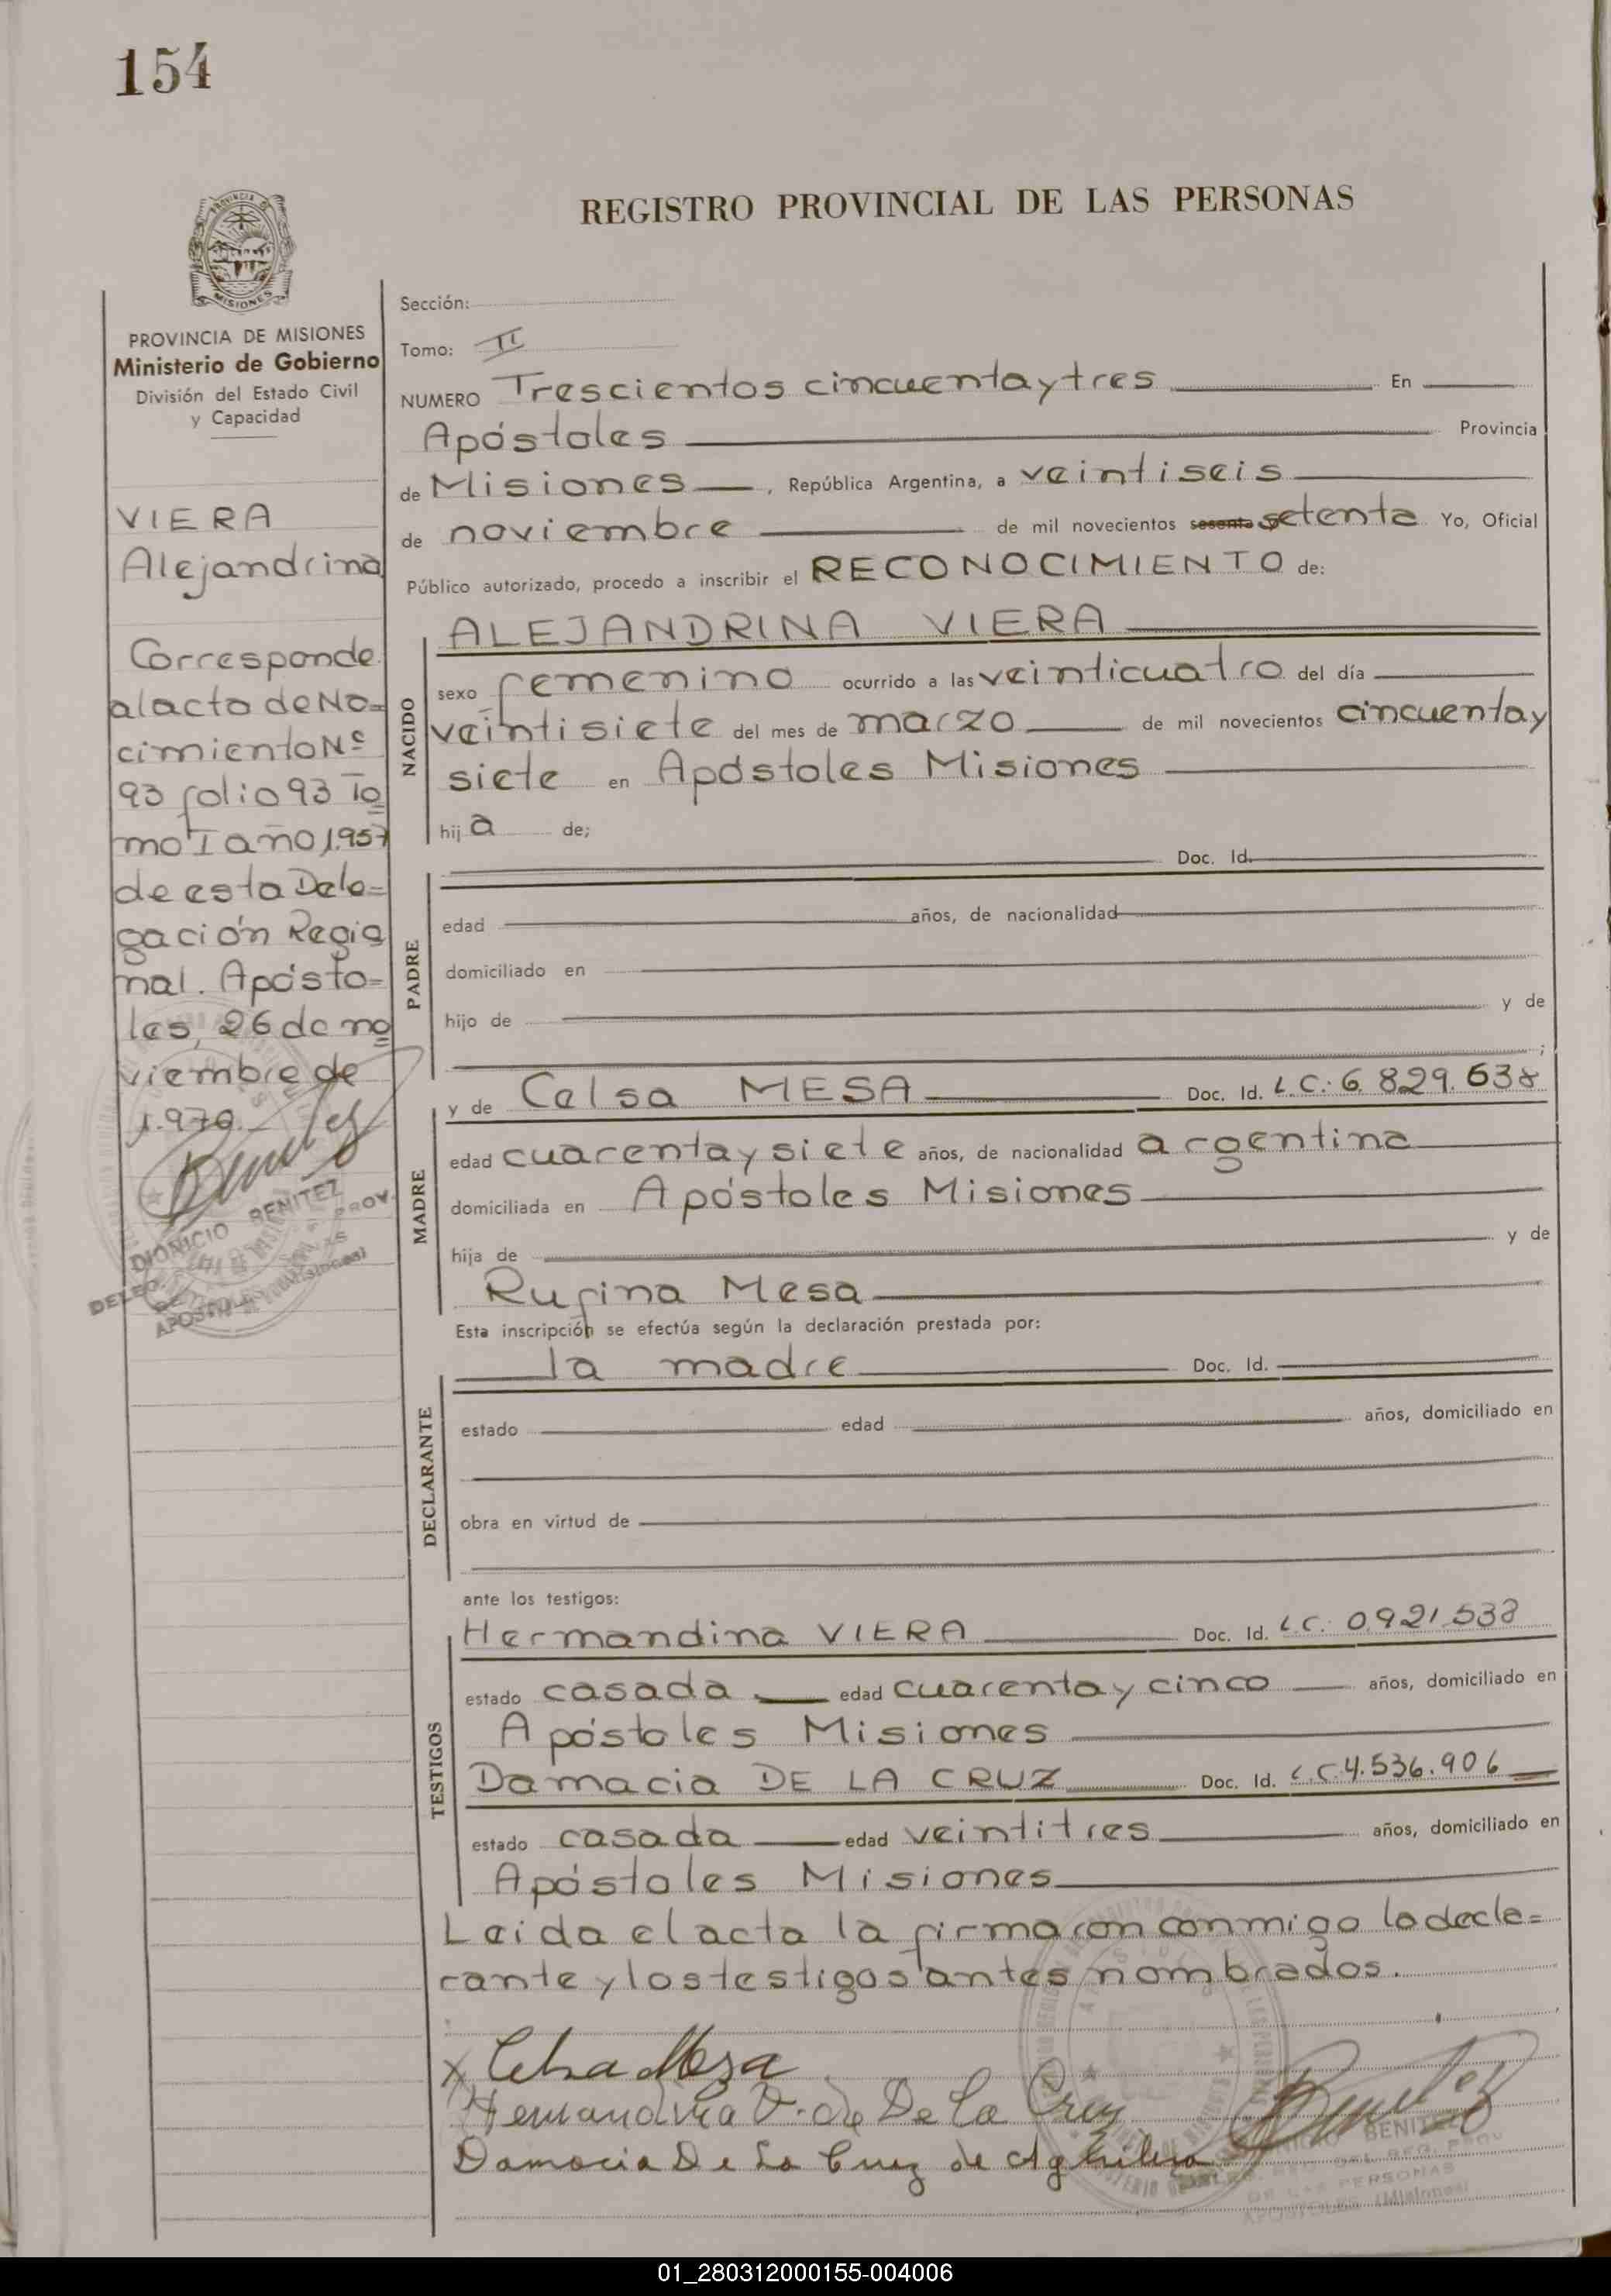 154
REGISTRO PROVINCIAL DE LAS PERSONAS
PROVINCIA DE MISIONES
Ministerio de Gobierno
División del Estado Civil
y Capacidad
VIERA
Alejandrina
Corresponde
al acto de Na=
cimiento Nº
93 folio 93 To
mo I año 1.957
de esta Dele=
gación Regio
nal. Aposto=
les, 26 de no
viembre de
1.970.-
DIONICIO BENITEZ
Sección:
Tomo: II
NUMERO Trescientos cincuenta y tres En
Apóstoles Provincia
de Misiones, República Argentina, a veintiseis
de noviembre de mil novecientos sesenta setenta Yo, Oficial
Público autorizado, procedo a inscribir el RECONOCIMIENTO de:
NACIDO
ALEJANDRINA VIERA
sexo femenino ocurrido a las veinticuatro del día
veintisiete del mes de marzo de mil novecientos cincuenta y
siete en Apóstoles Misiones
hij a de;
PADRE
Doc. Id.
edad años, de nacionalidad
domiciliado en
hijo de y de
;
MADRE
y de Celsa MESA Doc. Id. L.C.: 6.829.638
edad cuarenta y siete años, de nacionalidad argentina
domiciliada en Apóstoles Misiones
hija de y de
Rufina Mesa
Esta inscripción se efectúa según la declaración prestada por:
DECLARANTE
la madre Doc. Id.
estado edad años, domiciliado en
obra en virtud de
ante los testigos:
TESTIGOS
Hermandina VIERA Doc. Id. L.C.: 0.921.538
estado casada edad cuarenta y cinco años, domiciliado en
Apóstoles Misiones
Damacia DE LA CRUZ Doc. Id. L.C 4.536.906
estado casada edad veintitres años, domiciliado en
Apóstoles Misiones
Leida el acta la firmaron conmigo la decla=
rante y los testigos antes nombrados.
x Celsa Mesa
Hermandina V. de De La Cruz
Damacia De La Cruz de Aguilera
BENITEZ
01_280312000155-004006